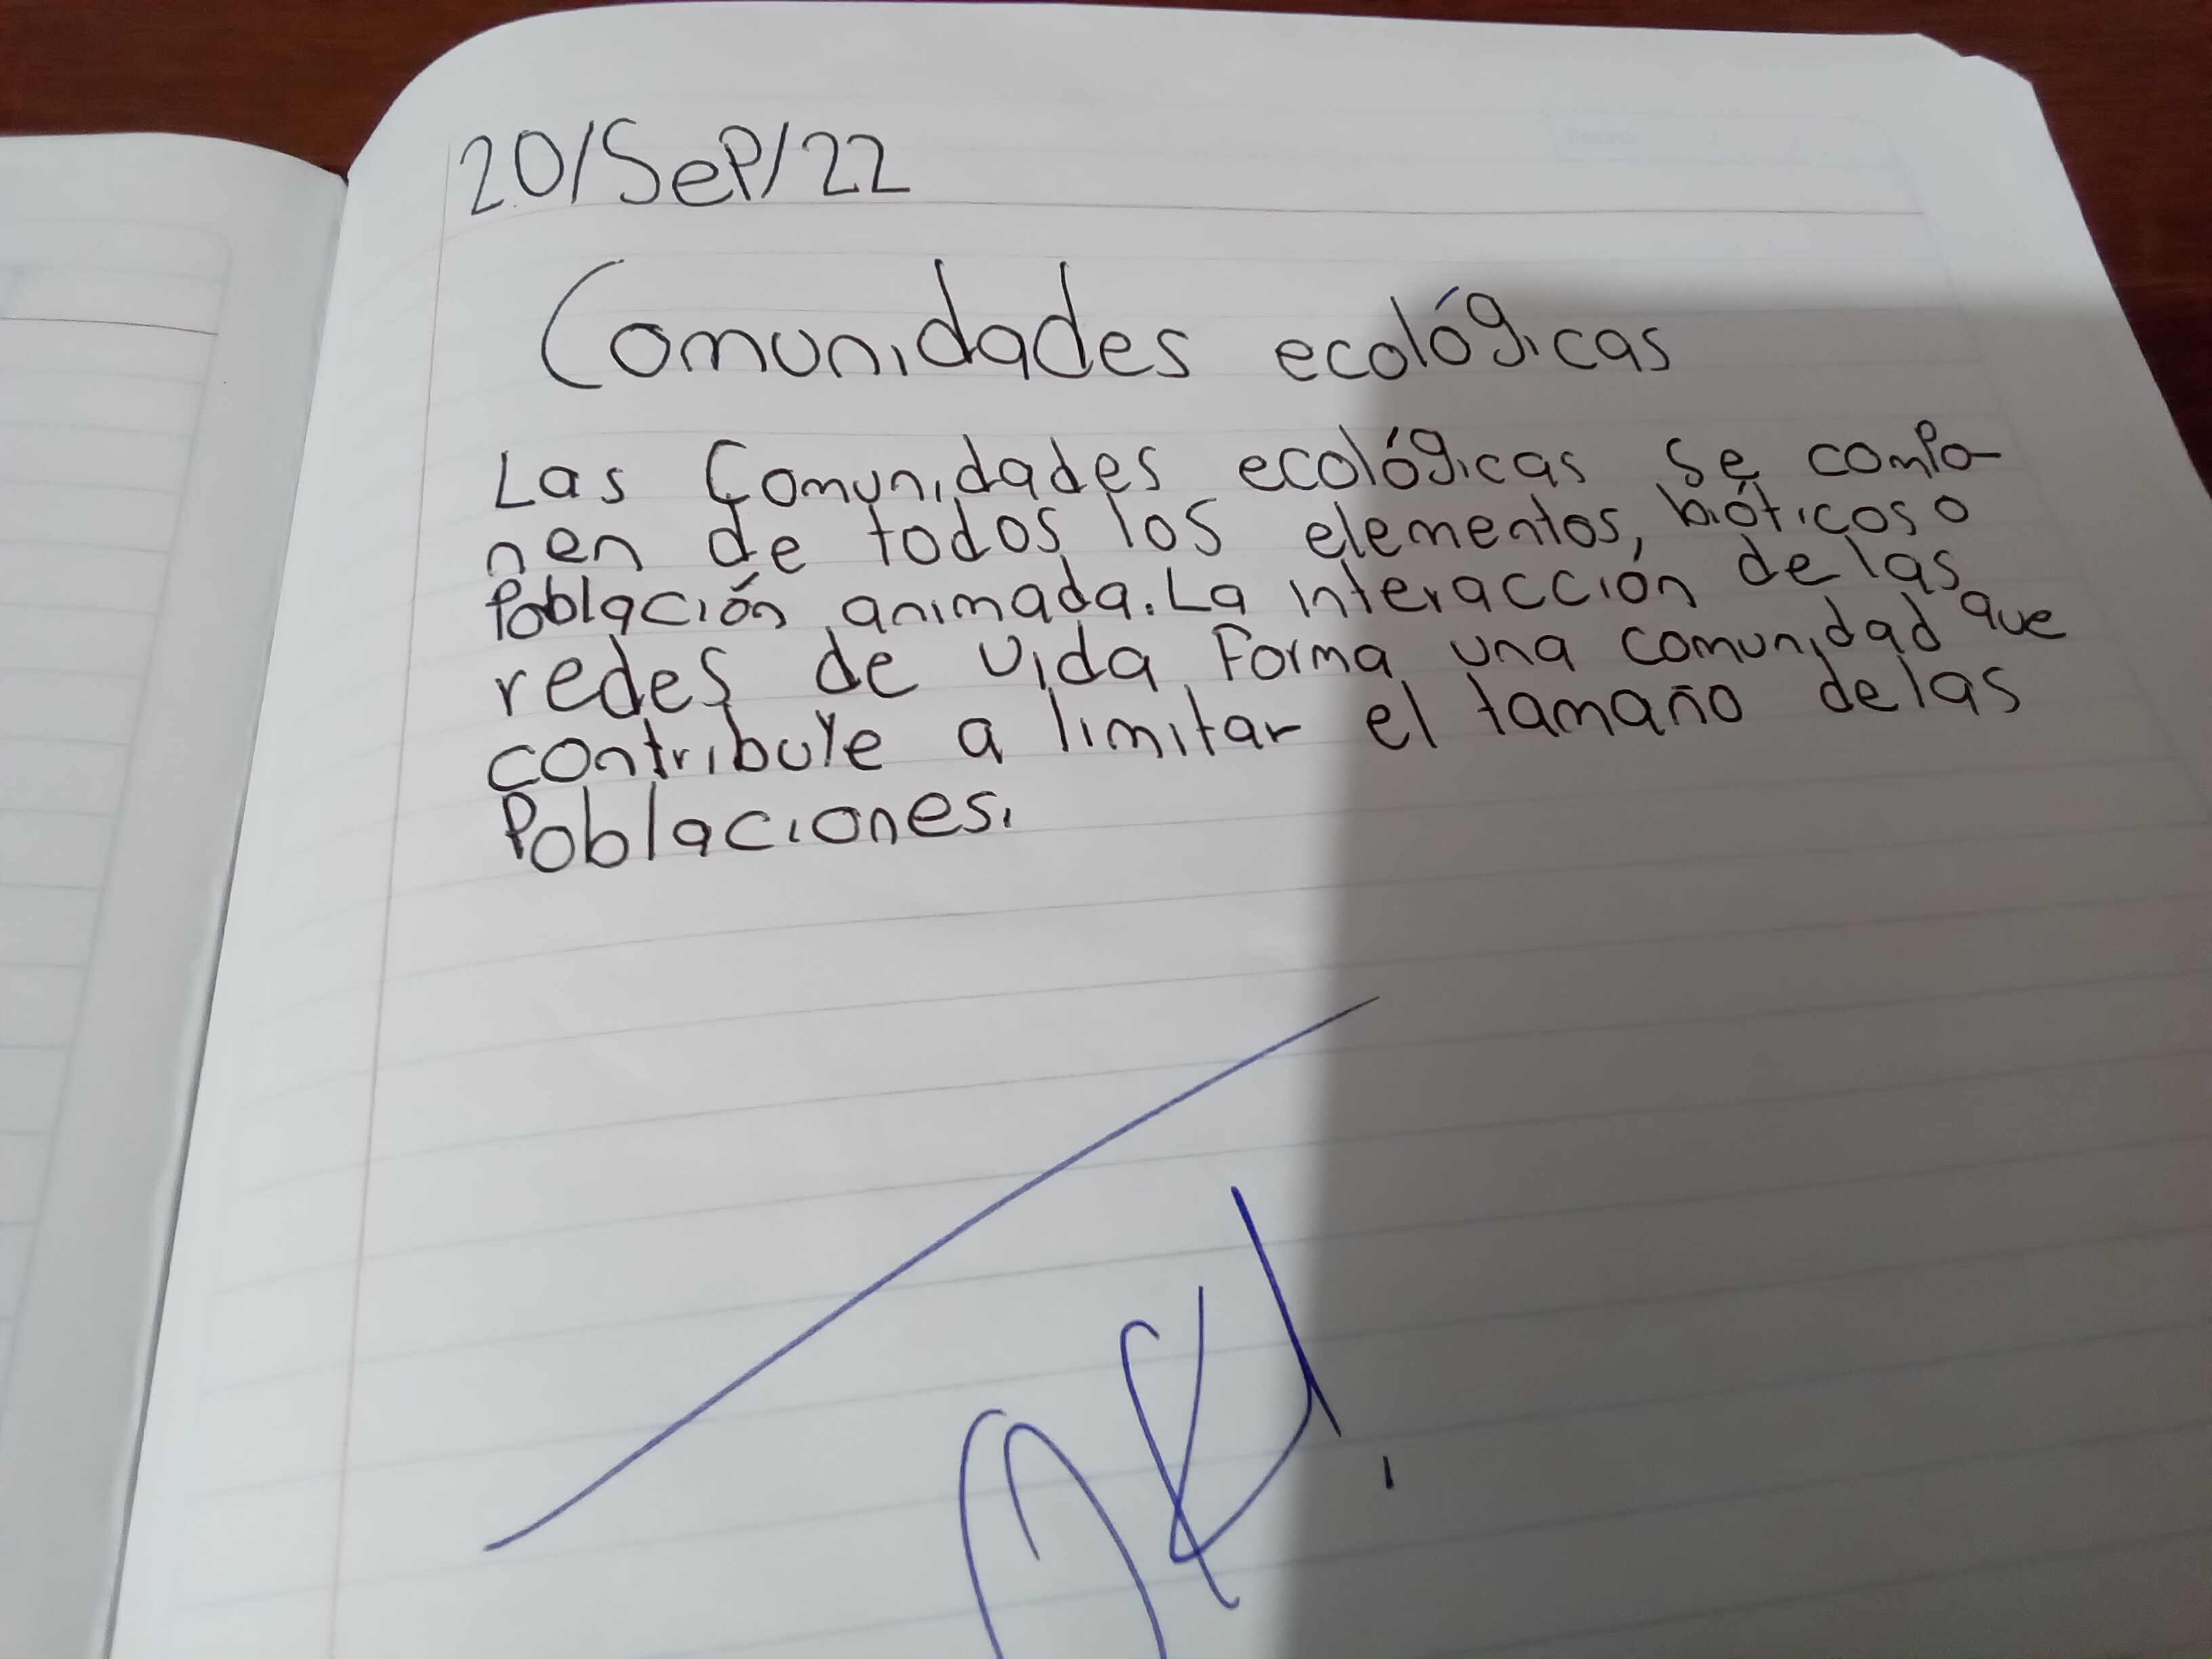 20/Sep/22
Comunidades ecológicas
Las Comunidades ecológicas se compo-
nen de todos los elementos, bióticos o
Población animada. La interacción de las
redes de vida forma una comunidad que
contribuye a limitar el tamaño de las
Poblaciones.